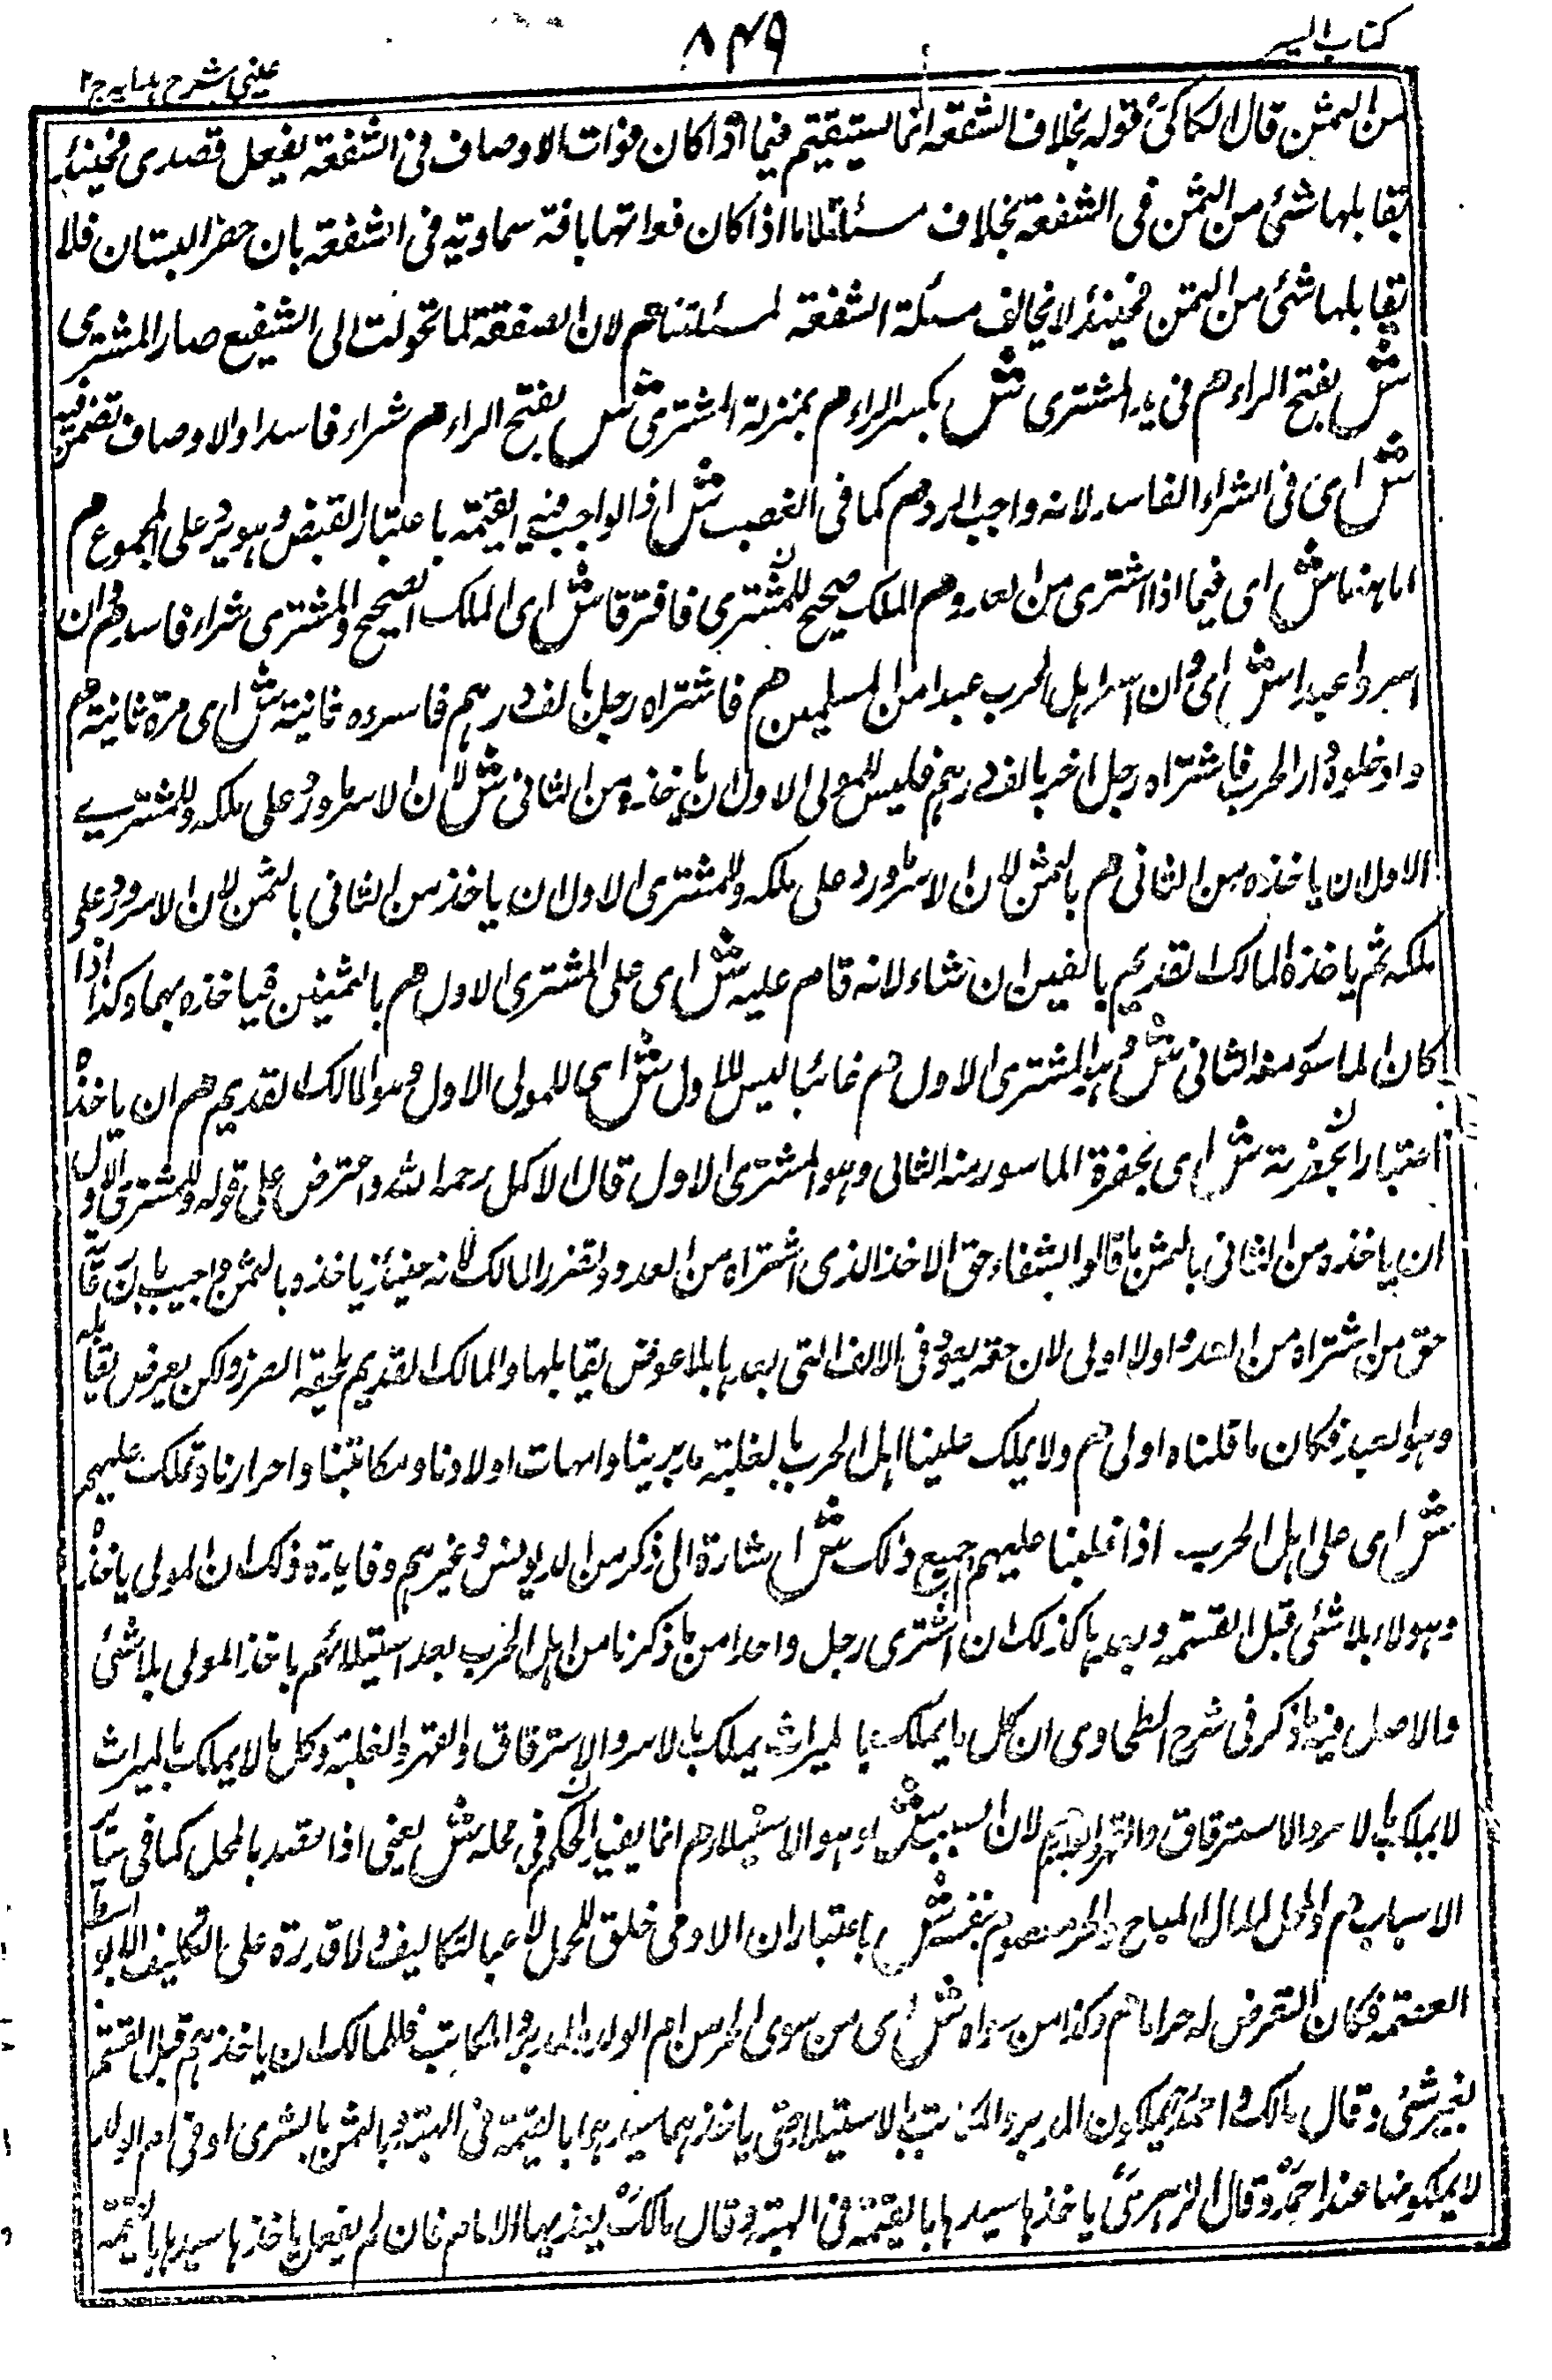 كتاب السير
٨٤٩
عيني شرح هدايه ج٢
من الثمن قال الكاكي قوله بخلاف الشفعة انما يستقيم فيما اذا كان فوات الاوصاف في الشفعة بفعل قصدى فحينئذ
يقابلها شئ من الثمن في الشفعة بخلاف مسئلتنا اما اذا كان فواتها بافة سماوية في الشفعة بان جف البستان فلا
يقابلها شئ من الثمن فحينئذ لا يخالف مسئلة الشفعة لمسئلتنا م لان الصفقة لما تحولت الى الشفيع صار المشترى
ش بفتح الراء م في يد المشترى ش بكسر الراء م بمنزلة المشترى ش بفتح الراء م شراء فاسدا والاوصاف تضمن فيه
ش اى في الشراء الفاسد لانه واجب الرد م كما في الغصب ش اذ الواجب فيه القيمة باعتبار القبض وهو يرد على المجموع م
اما هنا ش اى فيما اذا اشترى من العدو م الملك صحيح للمشترى فافترقا ش اى الملك الصحيح والمشترى شراء فاسدا م وان
اسروا عبدا ش اى وان اسر اهل الحرب عبدا من المسلمين م فاشتراه رجل بالف درهم فاسروه ثانية ش اى مرة ثانية م
وادخلوه دار الحرب فاشتراه رجل اخر بالف درهم فليس للمولى الاول ان ياخذه من الثانى ش لان الاسر ما ورد على ملكه وللمشترى
الاول ان ياخذه من الثانى م بالثمن لان الاسر ورد على ملكه وللمشترى الاول ان ياخذ من الثانى بالثمن لان الاسر ورد على
ملكه ثم ياخذه المالك القديم بالفين ان شاء لانه قام عليه ش اى على المشترى الاول م بالثمنين فياخذه بهما وكذا اذا
كان الماسور منه الثانى ش وهو المشترى الاول م غائبا ليس للاول ش اى للمولى الاول وهو المالك القديم م ان ياخذه
اعتبارا بحضرته ش اى بحضرة الماسور منه الثانى وهو المشترى الاول قال الاكمل رحمه الله واعترض على قوله وللمشترى الاول
ان ياخذه من الثانى بالثمن بقالوا لبقاء حق الاخذ الذى اشتراه من العدو وتضرر المالك لانه حينئذ ياخذه بالثمنين واجيب بان رعاية
حق من اشتراه من العدو اولا اولى لان حقه يعود في الالف التى نقدها بلا عوض يقابلها والمالك القديم يلحقه الضرر ولكن بعوض يقابله
وهو العبد فكان ما قلناه اولى م ولا يملك علينا اهل الحرب بالغلبة مدبرينا وامهات اولادنا ومكاتبينا واحرارنا ونملك عليهم
ش اى على اهل الحرب اذا غلبنا عليهم جميع ذلك ش اشارة الى ذكر من المدبرين وغيرهم وفائدة ذلك ان المولى ياخذ
هولاء بلا شئ قبل القسمة وبعدها كذلك ان اشترى رجل واحدا من ما ذكرنا من اهل الحرب بعد استيلائهم ياخذ المولى بلا شئ
والاصل فيه ما ذكر في شرح الطحاوى ان كل ما يملك بالميراث يملك بالاسر والاسترقاق والقهر والغلبة وكل ما لا يملك بالميراث
لا يملك بالاسر والاسترقاق والقهر والغلبة م لان السبب ش وهو الاستيلاء م انما يفيد الحكم في محله ش يعنى اذا انعقد بالمحل كما في سائر
الاسباب م والمحل المال المباح والحر معصوم بنفسه ش باعتبار ان الادمى خلق لتحمل اعباء التكاليف ولا قدرة على التكليف الا بواسطة
العصمة فكان التعرض له حراما م وكذا من سواه ش اى من سوى الحر من ام الولد والمدبر والمكاتب فللمالك ان ياخذهم قبل القسمة
بغير شئ وقال مالك واحمد يملكون المدبر والمكاتب بالاستيلاء حتى ياخذهما سيدهما بالقيمة في الهبة وبالثمن بالشرى او في ام الولد
لا يملكونها عند احمد وقال الزهرى ياخذها سيدها بالقيمة في الهبة وقال مالك يفديها الامام فان لم يفعل ياخذها سيدها بالقيمة